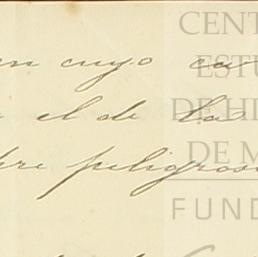 en cuyo ca
e el de la
bre peligros
CENT
ESTU
DE HI
DE M
FUND